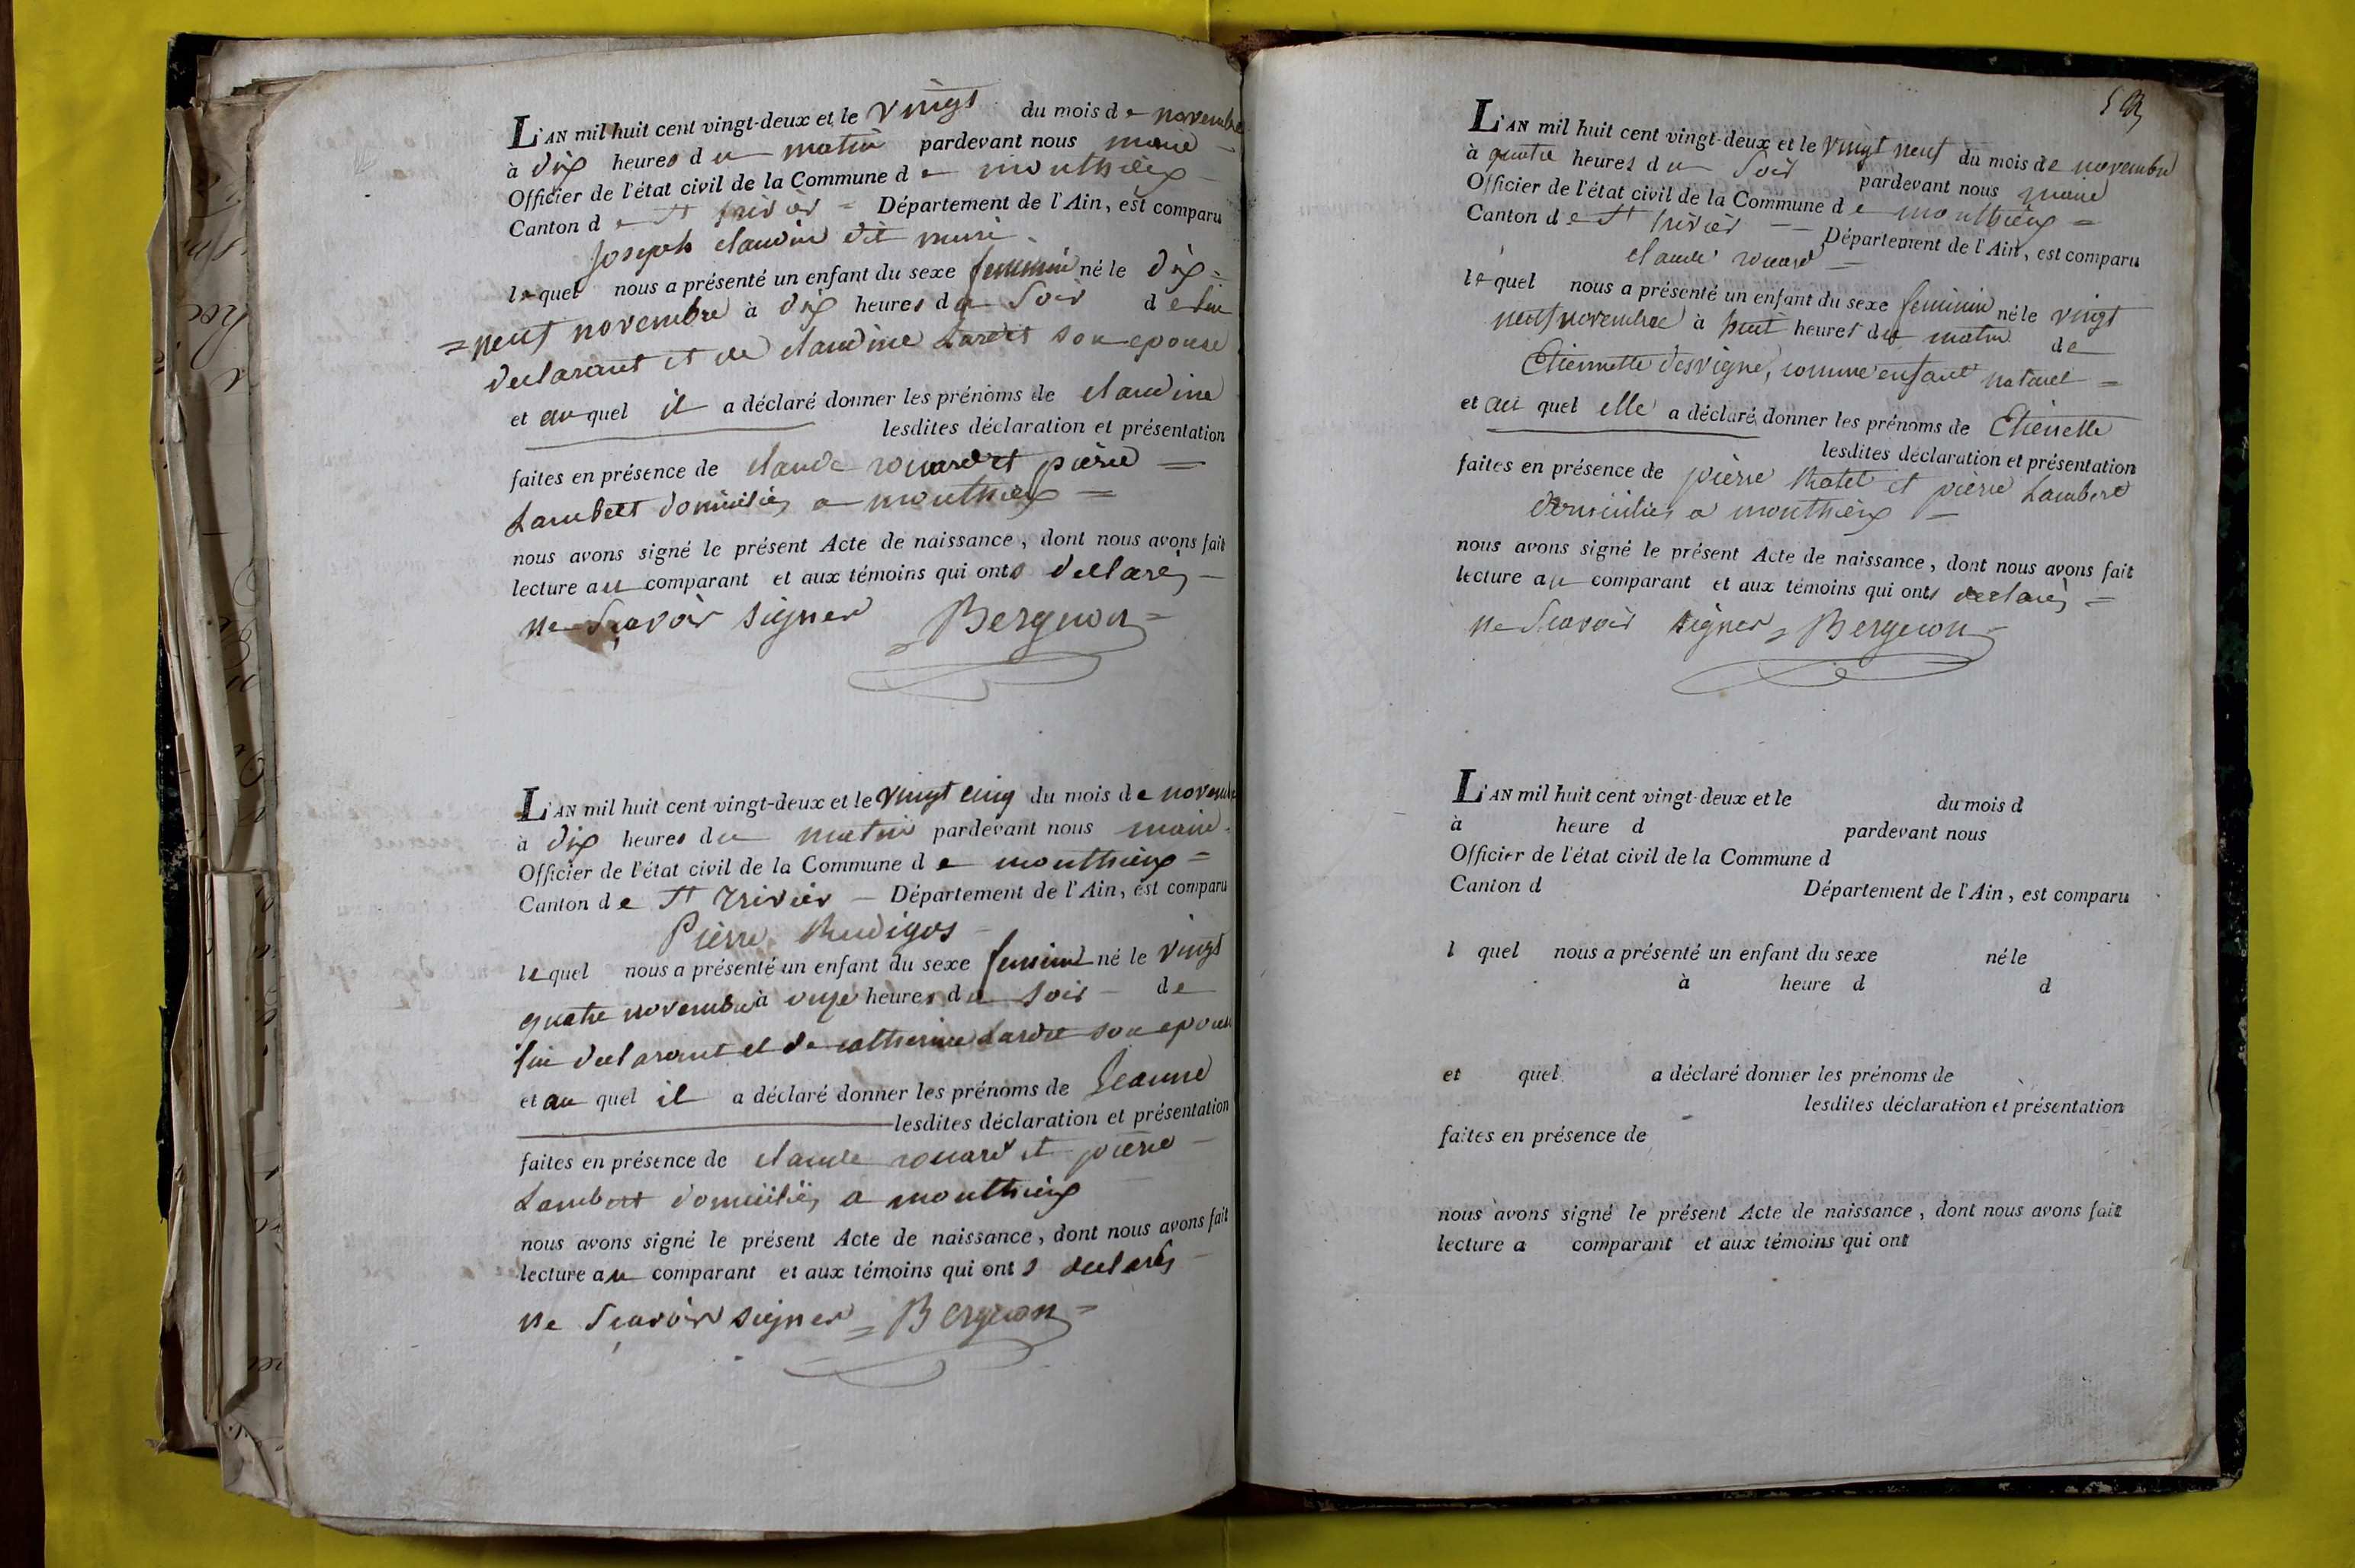 L'AN mil huit cent vingt-deux et le vingt du mois de novembre
à dix heures du matin pardevant nous maire
Officier de l'état civil de la Commune de monthieux
Canton de St trivier = Département de l'Ain, est comparu
joseph claudin dit
lequel nous a présenté un enfant du sexe feminin né le dix =
= neuf novembre à dix heures du soir de lui
declarant et de claudine Lardet son epouse
et auquel il a déclaré donner les prénoms de claudine
lesdites déclaration et présentation
faites en présence de claude rouard et pierre =
Lambert domiciliés a monthieux =
nous avons signé le présent Acte de naissance, dont nous avons fait
lecture au comparant et aux témoins qui onts declarés
ne sçavoir signer = Bergeron =
L'AN mil huit cent vingt-deux et le vingt cinq du mois de novembre
à dix heures du matin pardevant nous maire
Officier de l'état civil de la Commune de monthieux =
Canton de St Trivier — Département de l'Ain, est comparu
Pierre
lequel nous a présenté un enfant du sexe feminin né le vingt
quatre novembre à onze heures du soir — de
lui declarant et de catherine Lardet son epouse
et au quel il a déclaré donner les prénoms de jeanne
lesdites déclaration et présentation
faites en présence de claude rouard et pierre
Lambert domiciliés a monthieux
nous avons signé le présent Acte de naissance, dont nous avons fait
lecture au comparant et aux témoins qui onts declarés
ne sçavoir signer = Bergeron =
L'AN mil huit cent vingt-deux et le vingt neuf du mois de novembre
à quatre heures du soir pardevant nous maire
Officier de l'état civil de la Commune de monthieux =
Canton de St trivier — Département de l'Ain, est comparu
claude rouard =
lequel nous a présenté un enfant du sexe feminin né le vingt
neuf novembre à huit heures du matin de
Etiennette desvigne, comme enfant naturel =
et au quel elle a déclaré donner les prénoms de Etiennette
lesdites déclaration et présentation
faites en présence de pierre et pierre Lambert
domiciliés a monthieux =
nous avons signé le présent Acte de naissance, dont nous avons fait
lecture au comparant et aux témoins qui onts declarés =
ne sçavoir signer = Bergeron =
L'AN mil huit cent vingt-deux et le du mois d
à heure d pardevant nous
Officier de l'état civil de la Commune d
Canton d Département de l'Ain, est comparu
l quel nous a présenté un enfant du sexe né le
à heure d d
et quel a déclaré donner les prénoms de
lesdites déclaration et présentation
faites en présence de
nous avons signé le présent Acte de naissance, dont nous avons fait
lecture a comparant et aux témoins qui ont